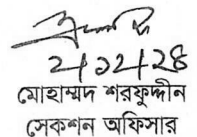 ২/১২/২৪
মোহাম্মদ শরফুদ্দীন
সেকশন অফিসার